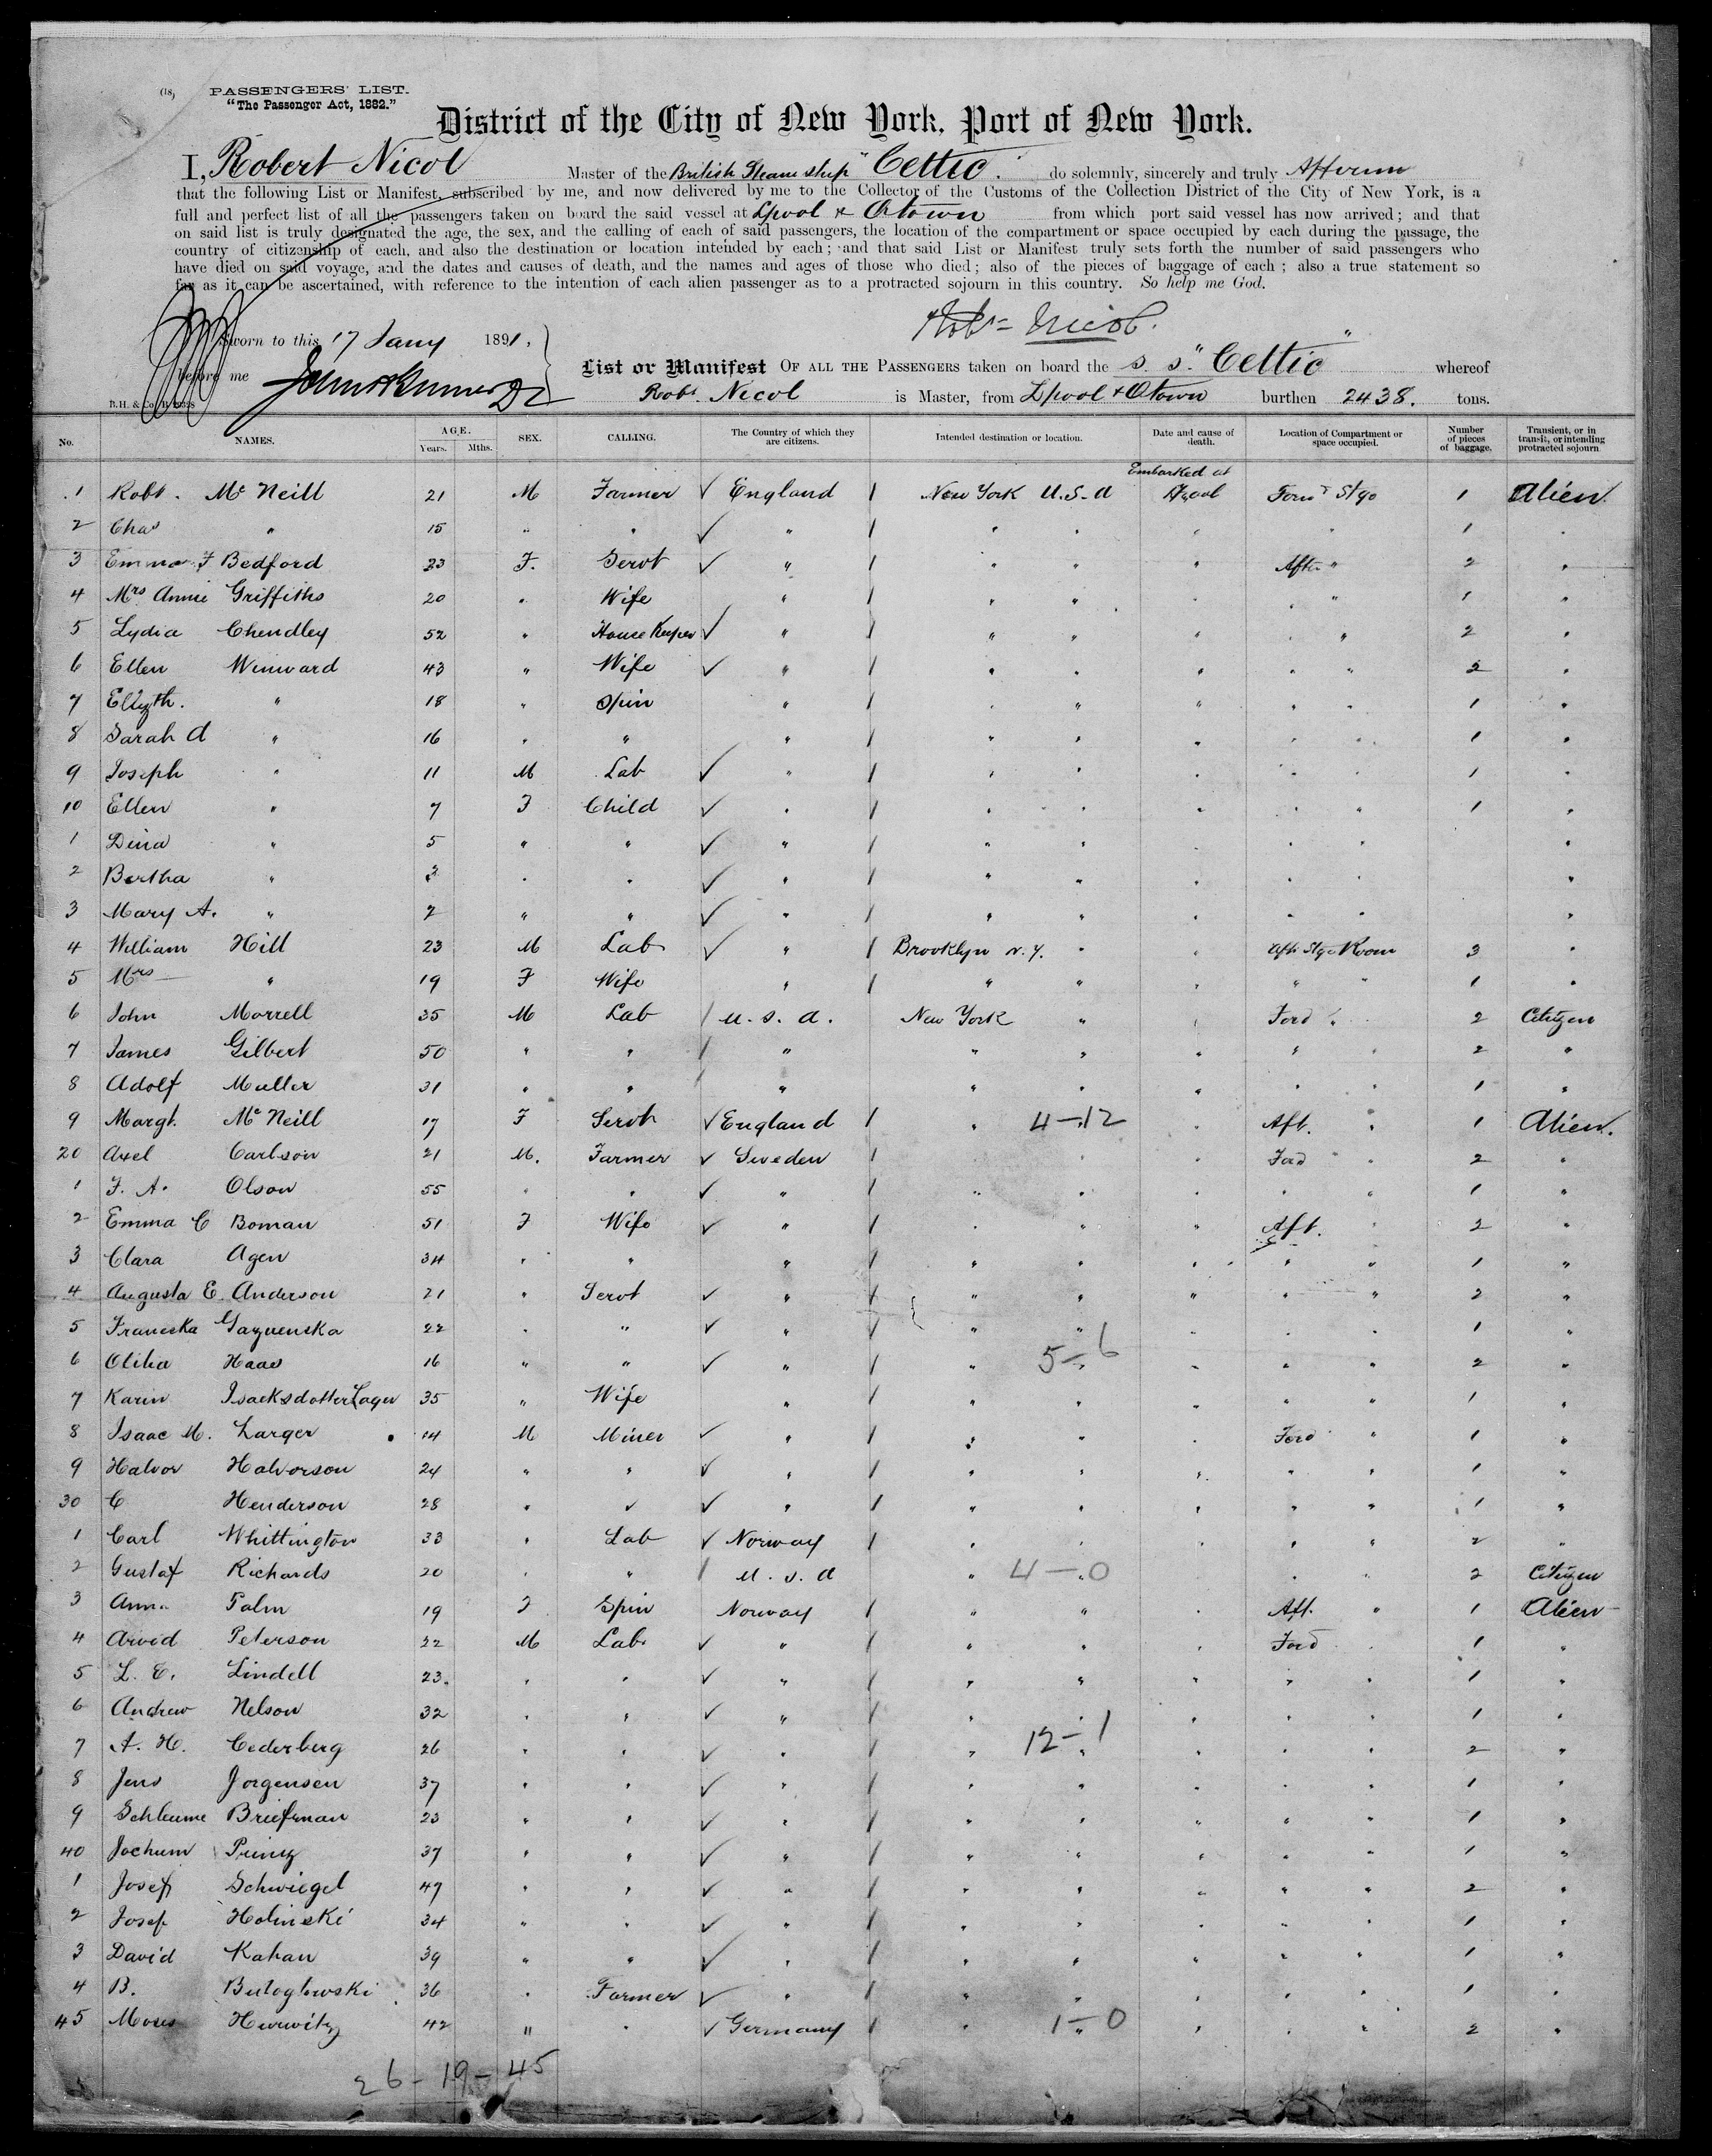 (18)
PASSENGERS' LIST.
"The Passenger Act, 1882."
District of the City of New York, Port of New York.
I, Robert Nicol Master of the British Steam ship "Celtic." do solemnly, sincerely and truly Affirm
that the following List or Manifest, subscribed by me, and now delivered by me to the Collector of the Customs of the Collection District of the City of New York, is a
full and perfect list of all the passengers taken on board the said vessel at Lpool & Qtown from which port said vessel has now arrived; and that
on said list is truly designated the age, the sex, and the calling of each of said passengers, the location of the compartment or space occupied by each during the passage, the
country of citizenship of each, and also the destination or location intended by each; and that said List or Manifest truly sets forth the number of said passengers who
have died on said voyage, and the dates and causes of death, and the names and ages of those who died; also of the pieces of baggage of each; also a true statement so
far as it can be ascertained, with reference to the intention of each alien passenger as to a protracted sojourn in this country. So help me God.
Robt Nicol.
Sworn to this 17 Jany 1891,
before me
List or Manifest OF ALL THE PASSENGERS taken on board the S. S. "Celtic" whereof
Robt. Nicol is Master, from Lpool & Qtown burthen 2438. tons.
No. NAMES. AGE. Years. Mths. SEX. CALLING. The Country of which they are citizens. Intended destination or location. Date and cause of death. Location of Compartment or space occupied. Number of pieces of baggage. Transient, or in transit, or intending protracted sojourn
Embarked at
1 Robt. McNeill 21 M Farmer ✓ England / New York U.S.A Lpool Forwd Stge 1 Alien.
2 Chas " 15 " " ✓ " / " " " " 1 "
3 Emma F Bedford 23 F. Servt ✓ " / " " " After " 2 "
4 Mrs Annie Griffiths 20 " Wife " / " " " " " 1 "
5 Lydia Chendley 52 " House Keeper ✓ " / " " " " " 2 "
6 Ellen Winward 43 " Wife ✓ " / " " " " " 2 "
7 Elizth. " 18 " Spin " / " " " " " 1 "
8 Sarah A " 16 " " " / " " " " " 1 "
9 Joseph " 11 M Lab ✓ " / " " " " " 1 "
10 Ellen " 7 F Child ✓ " / " " " " " 1 "
1 Dina " 5 " " ✓ " / " " " " "
2 Bertha " 3 " " ✓ " / " " " " "
3 Mary A. " 2 " " ✓ " / " " " " " "
4 William Hill 23 M Lab ✓ " / Brooklyn N.Y. " " Aft Stge Room 3 "
5 Mrs " 19 F Wife " / " " " " " 1 "
6 John Morrell 35 M Lab / U.S.A. New York " " Ford " 2 Citizen
7 James Gilbert 50 " " / " " " " " " 2 "
8 Adolf Muller 31 " " / " " " " " " 1 "
9 Margt. McNeill 17 F Servt ✓ England / " 4-12 " Aft. " 1 Alien.
20 Axel Carlson 21 M. Farmer ✓ Sweden / " " " Ford " 2 "
1 F. A. Olson 55 " " ✓ " / " " " " " 1 "
2 Emma C Boman 51 F Wife ✓ " / " " " Aft. " 2 "
3 Clara Agen 34 " " " / " " " " " 1 "
4 Augusta E. Anderson 21 " Servt ✓ " / " " " " " 2 "
5 Franciska 22 " " ✓ " / " " " " " 1 "
6 Haas 16 " " ✓ " / " 5-6 " " " 2 "
7 Karin Isacksdotter Lager 35 " Wife " / " " " " " 1 "
8 Isaac M. Larger 14 M Miner ✓ " / " " " Ford " 1 "
9 Halvor Halvorson 24 " " ✓ " / " " " " " 1 "
30 C Henderson 28 " " ✓ " / " " " " " 1 "
1 Carl Whittington 33 " Lab ✓ Norway / " " " " " 2 "
2 Gustaf Richards 20 " " / U.S.A " 4-0 " " 2 Citizen
3 Anna Palm 19 F Spin Norway / " " " Aft. " 1 Alien
4 Arvid Peterson 22 M Lab ✓ " / " " " Ford " 1 "
5 L. E. Lindell 23. " " ✓ " / " " " " " 1 "
6 Andrew Nelson 32 " " ✓ " / " " " " " 1 "
7 A. H. Cederberg 26 " " ✓ " / " 12-1 " " " 2 "
8 Jens Jorgensen 37 " " ✓ " / " " " " " 1 "
9 Schleume Briefman 23 " " ✓ " / " " " " " 1 "
40 Jochum Prinz 37 " " ✓ " / " " " " " 1 "
1 Josef Schwiegel 47 " " ✓ " / " " " " " 2 "
2 Josef Holinski 34 " " ✓ " / " " " " " 1 "
3 David Kahan 39 " " ✓ " / " " " " " 1 "
4 B. 36 " Farmer ✓ " / " " " " " 1 "
45 Moses Hurwitz 42 " " ✓ Germany / " 1-0 " " " 2 "
26-19-45